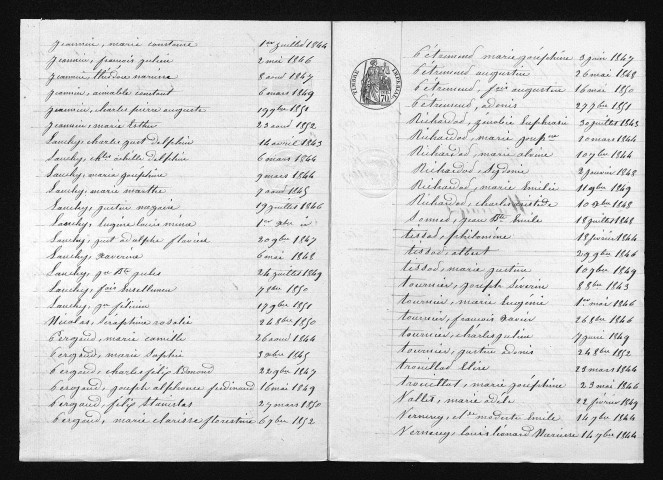 Jeannin, marie constance 1er juillet 1844
Jeannin, françois julien 2 mai 1846
Jeannin, théodore 8 aout 1847
Jeannin, aimable constant 6 mars 1849
Jeannin, charles pierre auguste 19 9bre 1851
Jeannin, marie Esther 23 aout 1852
Lanchy, charles gust Delphin 14 avril 1843
Lanchy, chles achille delphin 6 mars 1844
Lanchy, marie joséphine 9 mars 1844
Lanchy, marie marthe 7 aout 1845
Lanchy, justin nazaire 19 juillet 1846
Lanchy, Eugène louis 1er
Lanchy, just adolphe flavien 20 9bre 1847
Lanchy, xaverine 6 mai 1848
Lanchy, Bte jules 24 juillet 1849
Lanchy, fois Enselheme 7 8bre 1850
Lanchy, félicien 17 9bre 1851
Nicolas, Séraphine rosalie 24 8bre 1850
Pergaud, marie camille 26 aout 1844
Pergaud, marie Sophie 3 1845
Pergaud, charles félix Edmond 22 9bre 1847
Pergaud, joseph alphonse ferdinand 16 mai 1849
Pergaud, félix Stanislas 27 mars 1850
Pergaud, marie clarisse florentine 6 9bre 1852
TIMBRE IMPERIAL
70
Pétremend marie joséphine 3 juin 1847
Pétremend augustin 26 mai 1848
Pétremend, augustin 16 mai 1850
Pétremend, adonis 27 7bre 1851
Richardod, Euphrasie 30 juillet 1843
Richardod, marie 10 mars 1844
Richardod, marie 10 7bre 1844
Richardod, Sydonie 2 janvier 1848
Richardod, marie Emilie 11 9bre 1849
Richardod, charles 10 1848
jean Bte Emile 18 juillet 1848
tissod, philomène 18 février 1844
tissod, albert 29 9bre 1846
tissod, marie justine 10 9bre 1849
tournier, joseph Séverin 8 8bre 1843
tournier, marie Eugénie 1er mai 1846
tournier, françois xavier 26 8bre 1846
tournier, charles julien 7 juin 1849
tournier, justin adonis 24 8bre 1852
trouttet élise 23 mars 1844
trouttet, marie joséphine 23 mai 1846
Vallet, marie adèle 22 février 1849
Vernerey, modeste Emile 14 9bre 1844
Vernerey, louis léonard 14 7bre 1844